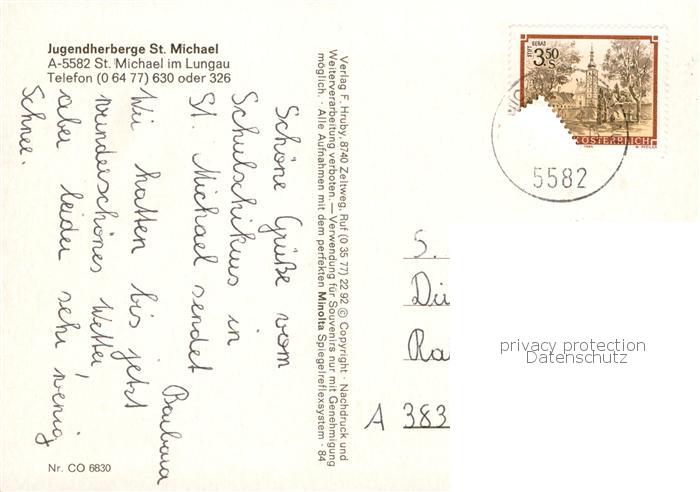 Jugendherberge St. Michael
A-5582 St. Michael im Lungau
Telefon (0 64 77) 630 oder 326
Schöne Grüße vom
Schulschikurs in
St. Michael sendet
Barbara
Wir hatten bis jetzt
wunderschönes Wetter,
aber leider sehr wenig
Schnee.
Nr. CO 6830
Verlag F. Hruby, 8740 Zeltweg, Ruf (0 35 77) 22 92 © Copyright · Nachdruck und
Weiterverarbeitung verboten. — Verwendung für Souvenirs nur mit Genehmigung
möglich. · Alle Aufnahmen mit dem perfekten Minolta Spiegelreflexsystem · 84
STIFT GERAS
3,50 S
ÖSTERREICH
5582
S.
Dü
Ra
A 383
privacy protection
Datenschutz